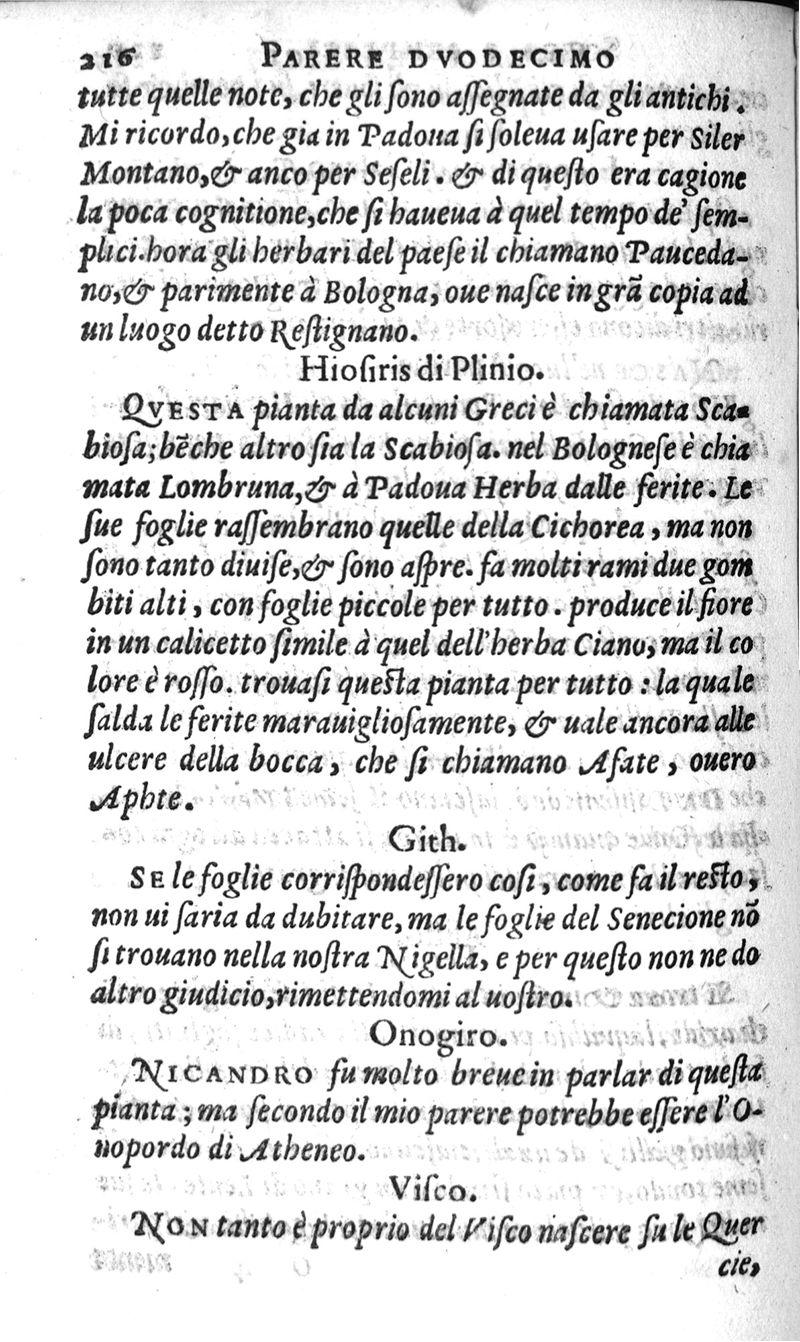 216 PARERE DVODECIMO
tutte quelle note, che gli ſono aſſegnate da gli antichi.
Mi ricordo, che gia in Padoua ſi ſoleua uſare per Siler
Montano, & anco per Seſeli. & di queſto era cagione
la poca cognitione, che ſi haueua à quel tempo de' ſem-
plici. hora gli herbari del paeſe il chiamano Pauceda-
no, & parimente à Bologna, oue naſce in grã copia ad
un luogo detto Reſtignano.
Hioſiris di Plinio.
QVESTA pianta da alcuni Greci è chiamata Sca-
bioſa; bẽche altro ſia la Scabioſa. nel Bologneſe è chia
mata Lombruna, & à Padoua Herba dalle ferite. Le
ſue foglie raſſembrano quelle della Cichorea, ma non
ſono tanto diuiſe, & ſono aſpre. fa molti rami due gom
biti alti, con foglie piccole per tutto. produce il fiore
in un calicetto ſimile à quel dell'herba Ciano, ma il co
lore è roſſo. trouaſi queſta pianta per tutto: la quale
ſalda le ferite marauiglioſamente, & uale ancora alle
ulcere della bocca, che ſi chiamano Afate, ouero
Aphte.
Gith.
SE le foglie corriſpondeſſero coſi, come fa il reſto,
non ui ſaria da dubitare, ma le foglie del Senecione nõ
ſi trouano nella noſtra Nigella, e per queſto non ne do
altro giudicio, rimettendomi al uoſtro.
Onogiro.
NICANDRO fu molto breue in parlar di queſta
pianta; ma ſecondo il mio parere potrebbe eſſere l'O-
nopordo di Atheneo.
Viſco.
NON tanto è proprio del Viſco naſcere ſu le Quer
cie,